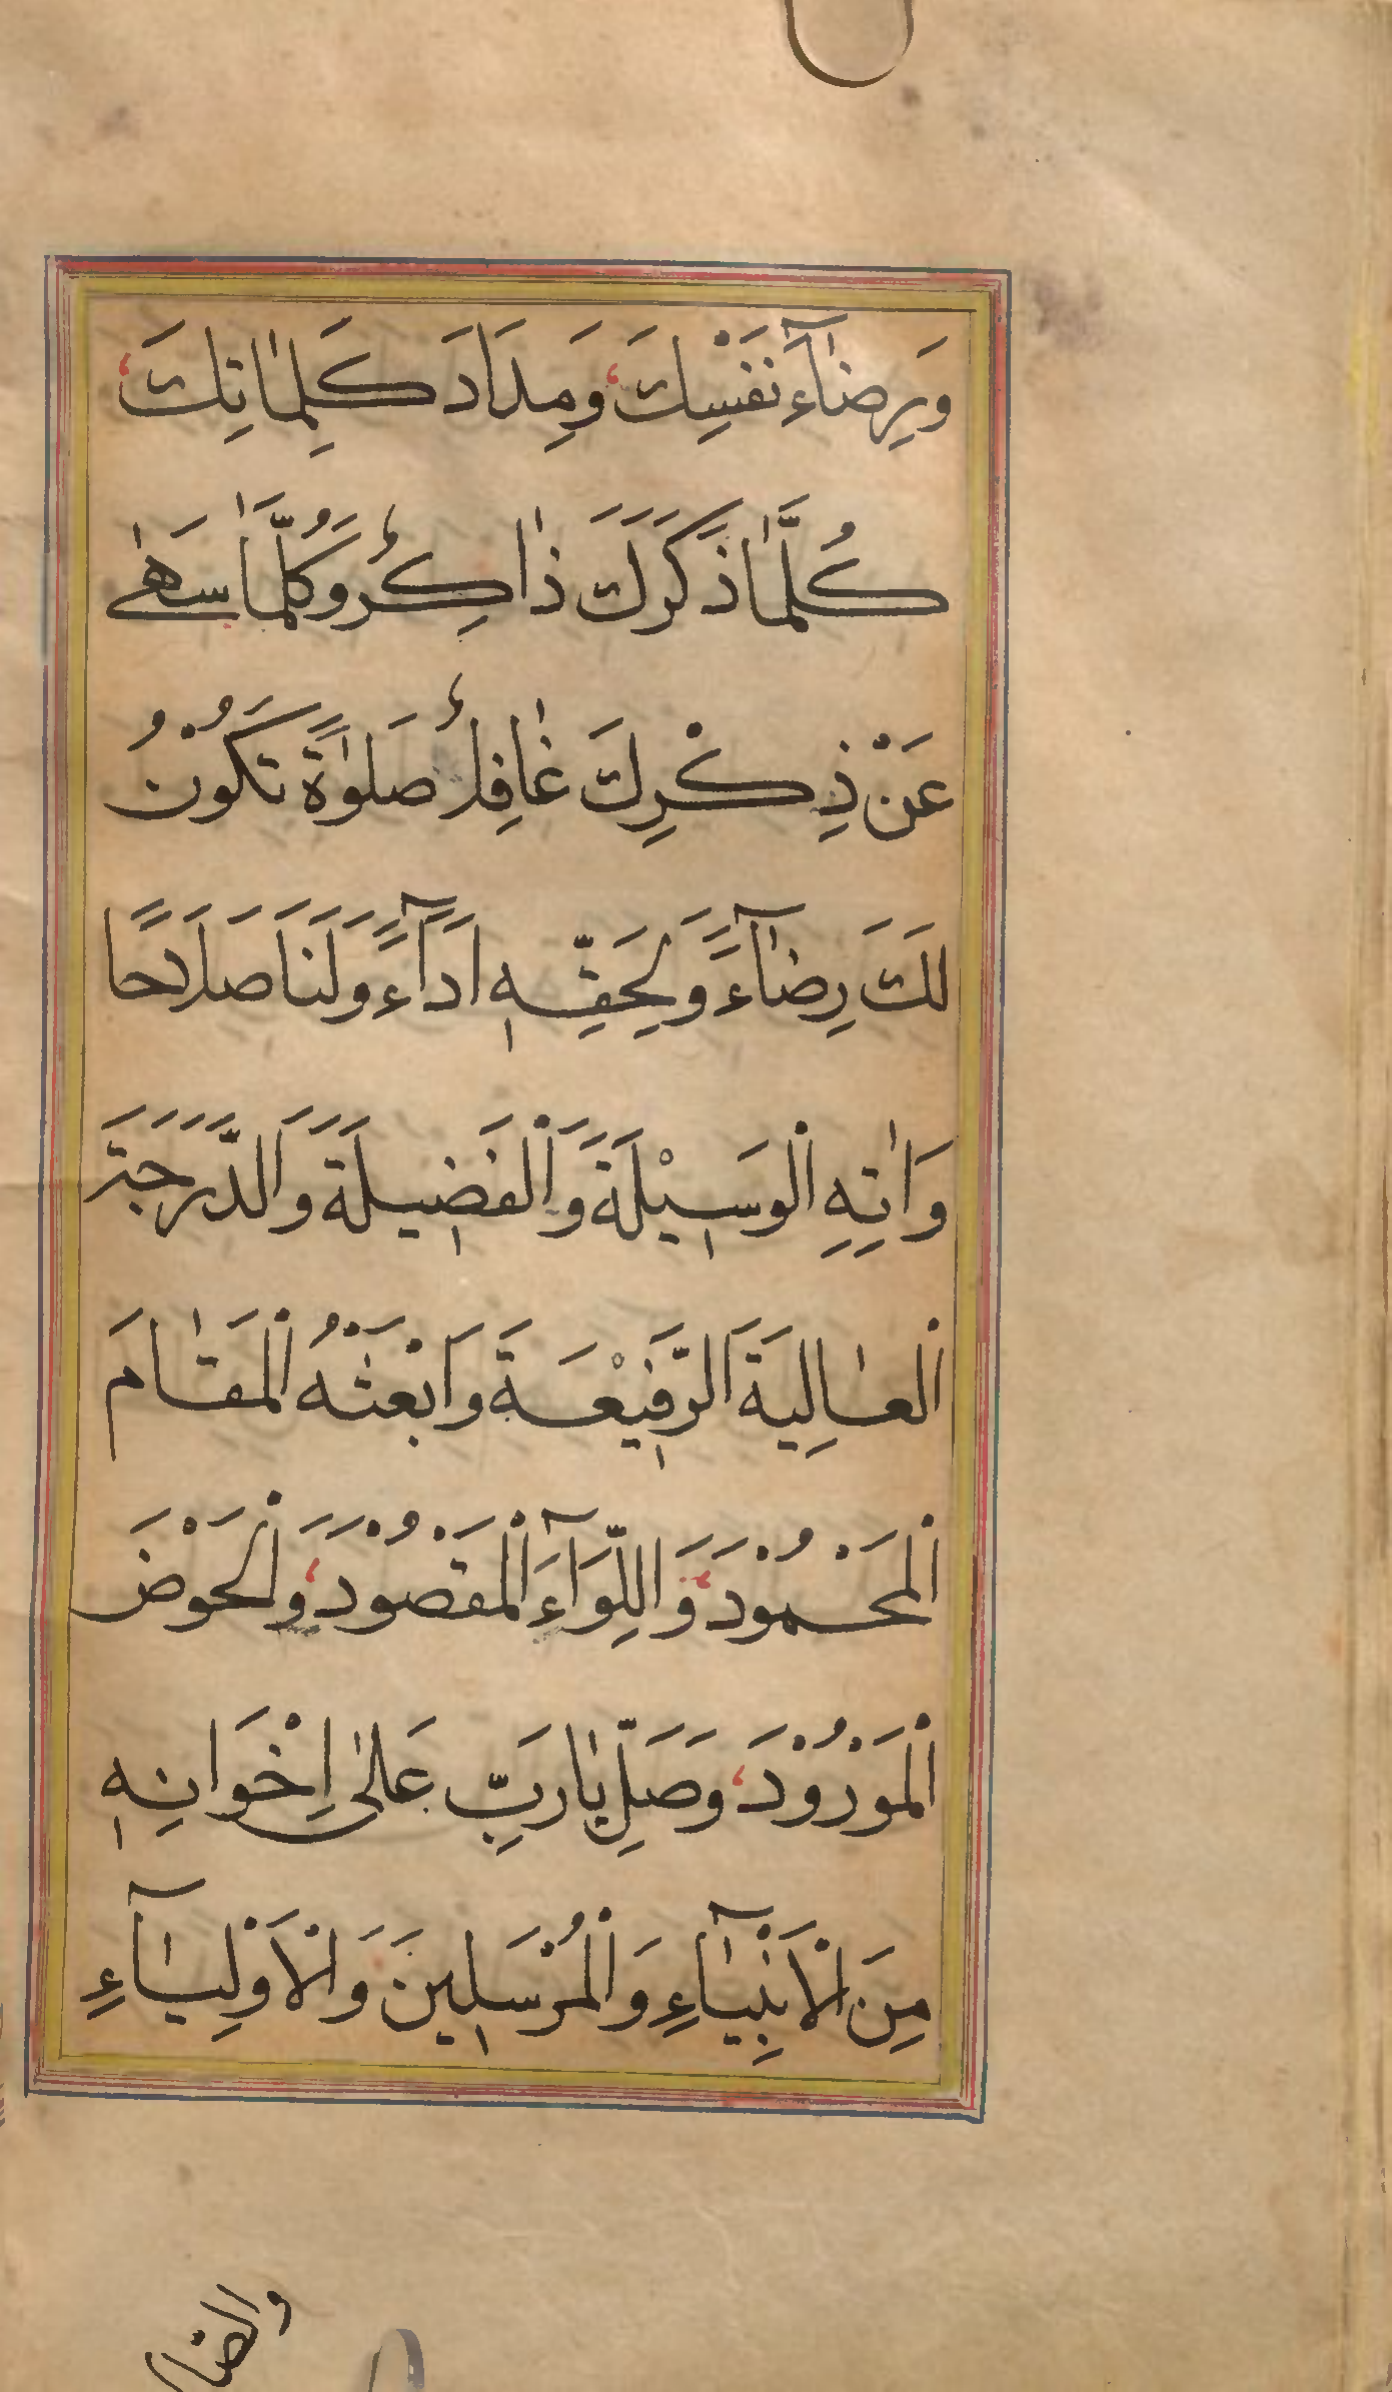 وَرِضَآءِ نَفْسِكَ، وَمِدَادَ كَلِمَاتِكَ،
كُلَّمَا ذَكَرَكَ ذَاكِرٌ وَكُلَّمَا سَهٰى
عَنْ ذِكْرِكَ غَافِلٌ صَلٰوةً تَكُوْنُ
لَكَ رِضَآءً وَلِحَقِّهٖ اَدَآءً وَلَنَا صَلَاحًا
وَاٰتِهِ الْوَسِيْلَةَ وَالْفَضِيلَةَ وَالدَّرَجَةَ
الْعَالِيَةَ الرَّفِيْعَةَ وَابْعَثْهُ الْمَقَامَ
الْمَحْمُوْدَ، وَاللِّوَآءَ الْمَقْصُوْدَ، وَالْحَوْضَ
الْمَوْرُوْدَ، وَصَلِّ يَارَبِّ عَلٰى اِخْوَانِهٖ
مِنَ الْاَنْبِيَآءِ وَالْمُرْسَلِينَ وَالْاَوْلِيَآءِ